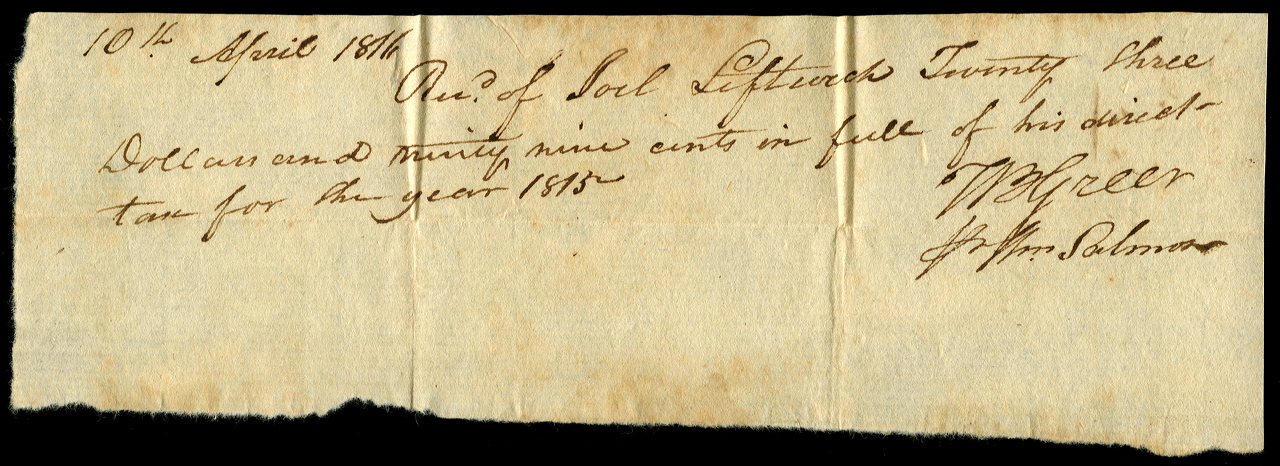 10th April 1816
Recd. of Joel Leftwich Twenty three
Dollars and ninety nine cents in full of his direct
tax for the year 1815
WB Greer
for Wm Salmon